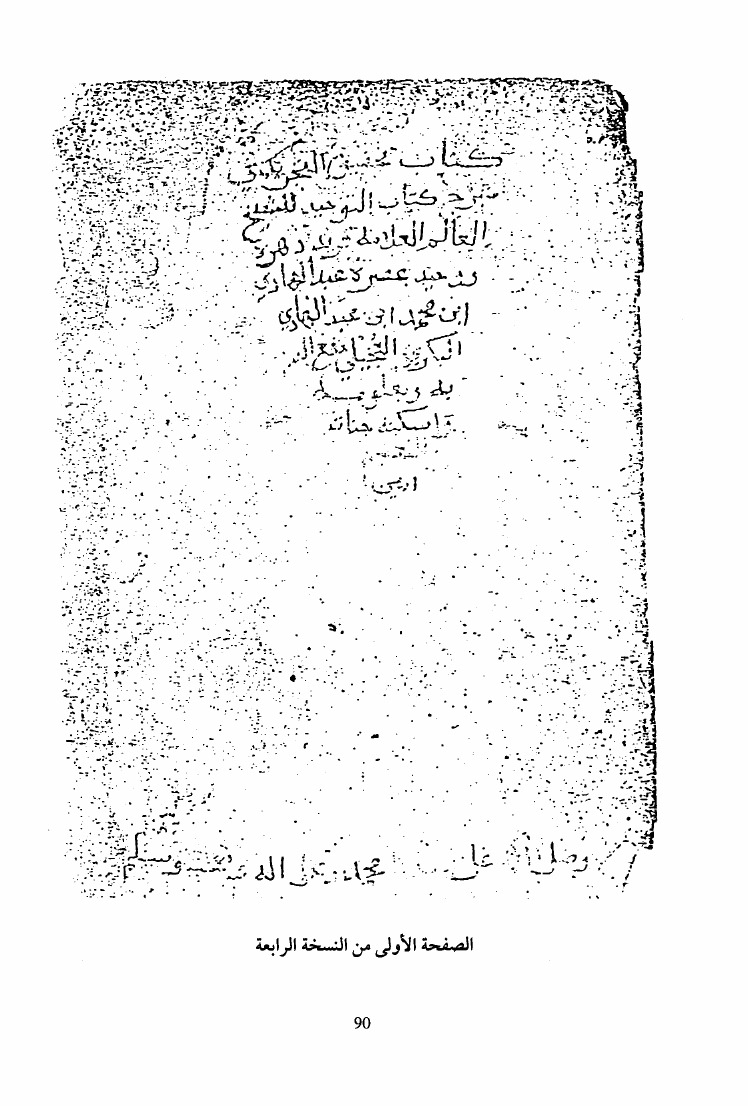 كتاب تحقيق التجريد في
شرح كتاب التوحيد للشيخ
العالم العلامة فريد دهره
ووحيد عصره عبدالهادي
ابن محمد ابن عبدالهادي
البكري العجيلي نفع الله
به وبعلومه
واسكنه جناته
امين
وصلى الله على محمد وعلى اله وصحبه وسلم
الصفحة الأولى من النسخة الرابعة
90